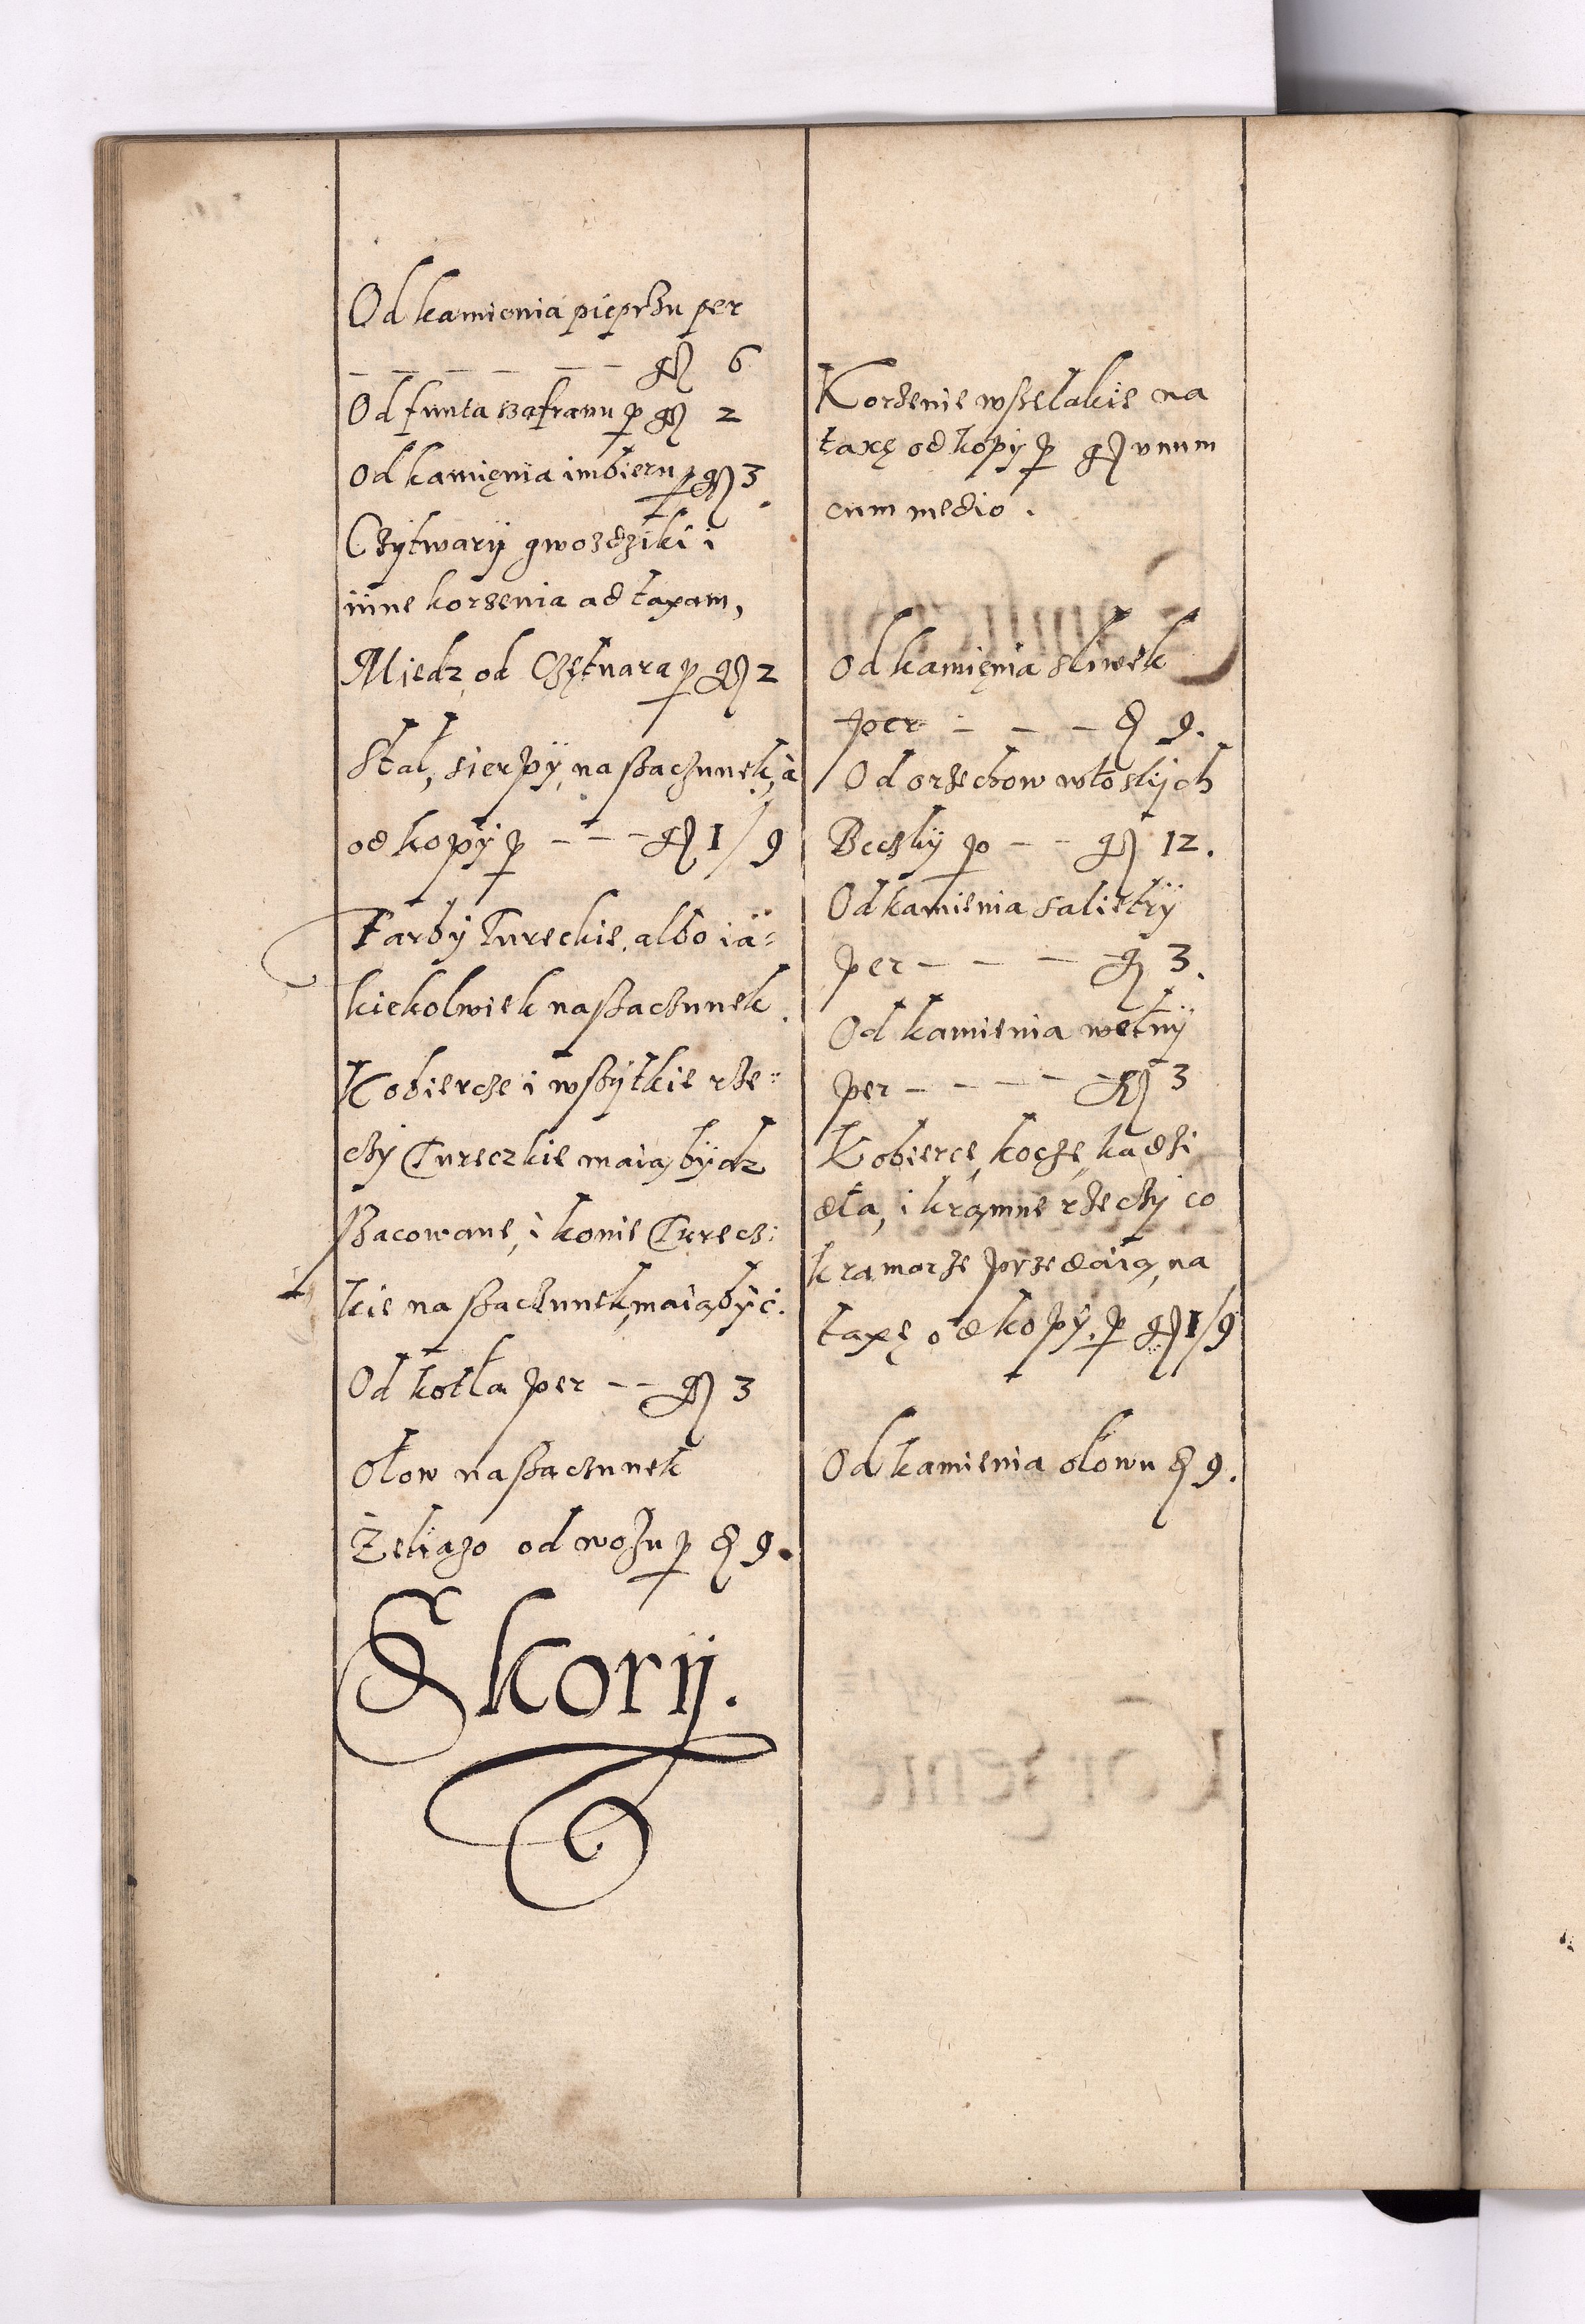 Od kamienia pieprzu per
– – – – – – gr 6
Od funta szafranu p gr 2
Od kamięnia imbieru p gr 3.
Czÿtwarÿ gwozdziki i
iine korzenia ad taxam,
Miedz od Czętnara p gr 2
Stal, sierpÿ, na ßaczunek, à
od kopÿ p – – – gr 1/9
Farbÿ Tureckie, albo ia=
kiekolwiek na ßaczunek.
Kobiercze i wßÿtkie rze=
czÿ Tureczkie maią bÿdz
ßacowane, i konie Turecz:
kie na ßaczunek, maią bÿć.
Od kotła per – – gr 3
Ołow na ßaczunek
Żeliazo od wozu p ₰ 9.
Skorÿ.
Korzenie wßelakie na
taxę od kopÿ p gr vnum
cum medio.
Od kamięnia sliwek
per – – – ₰ 9.
Od orzechow włoskich
Beczkÿ p – – gr 12.
Od kamienia salietrÿ
per – – – gr 3.
Od kamienia wełnÿ
per – – – – – gr 3
Kobierce, kocze, kadzi
dła, i kramne rzeczÿ co
kramarze przedaią, na
taxę od kopÿ. p gr 1/9
Od kamienia ołowu ₰ 9.